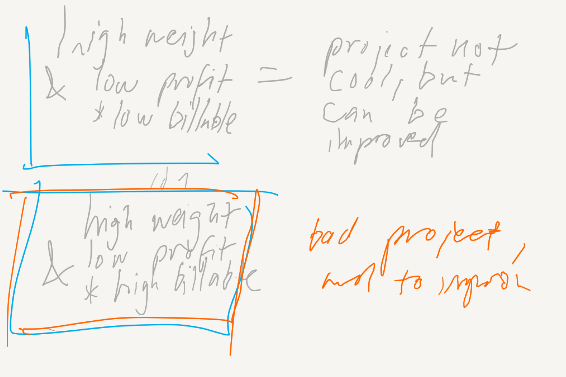 high weight
& low profit =
* low billable
project not
cool, but
can be
improved
high weight
& low profit
* high billable
bad project,
to